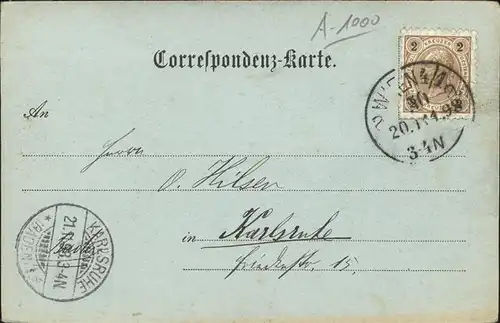 A-1000
2 KREUZER 2
Correspondenz-Karte.
WIEN 4/1
20.11.98
3-4N
An
Herrn
O. Hilsen
in Karlsruhe
15.
KARLSRUHE
21.11.98.3-4N
*(BADEN)*